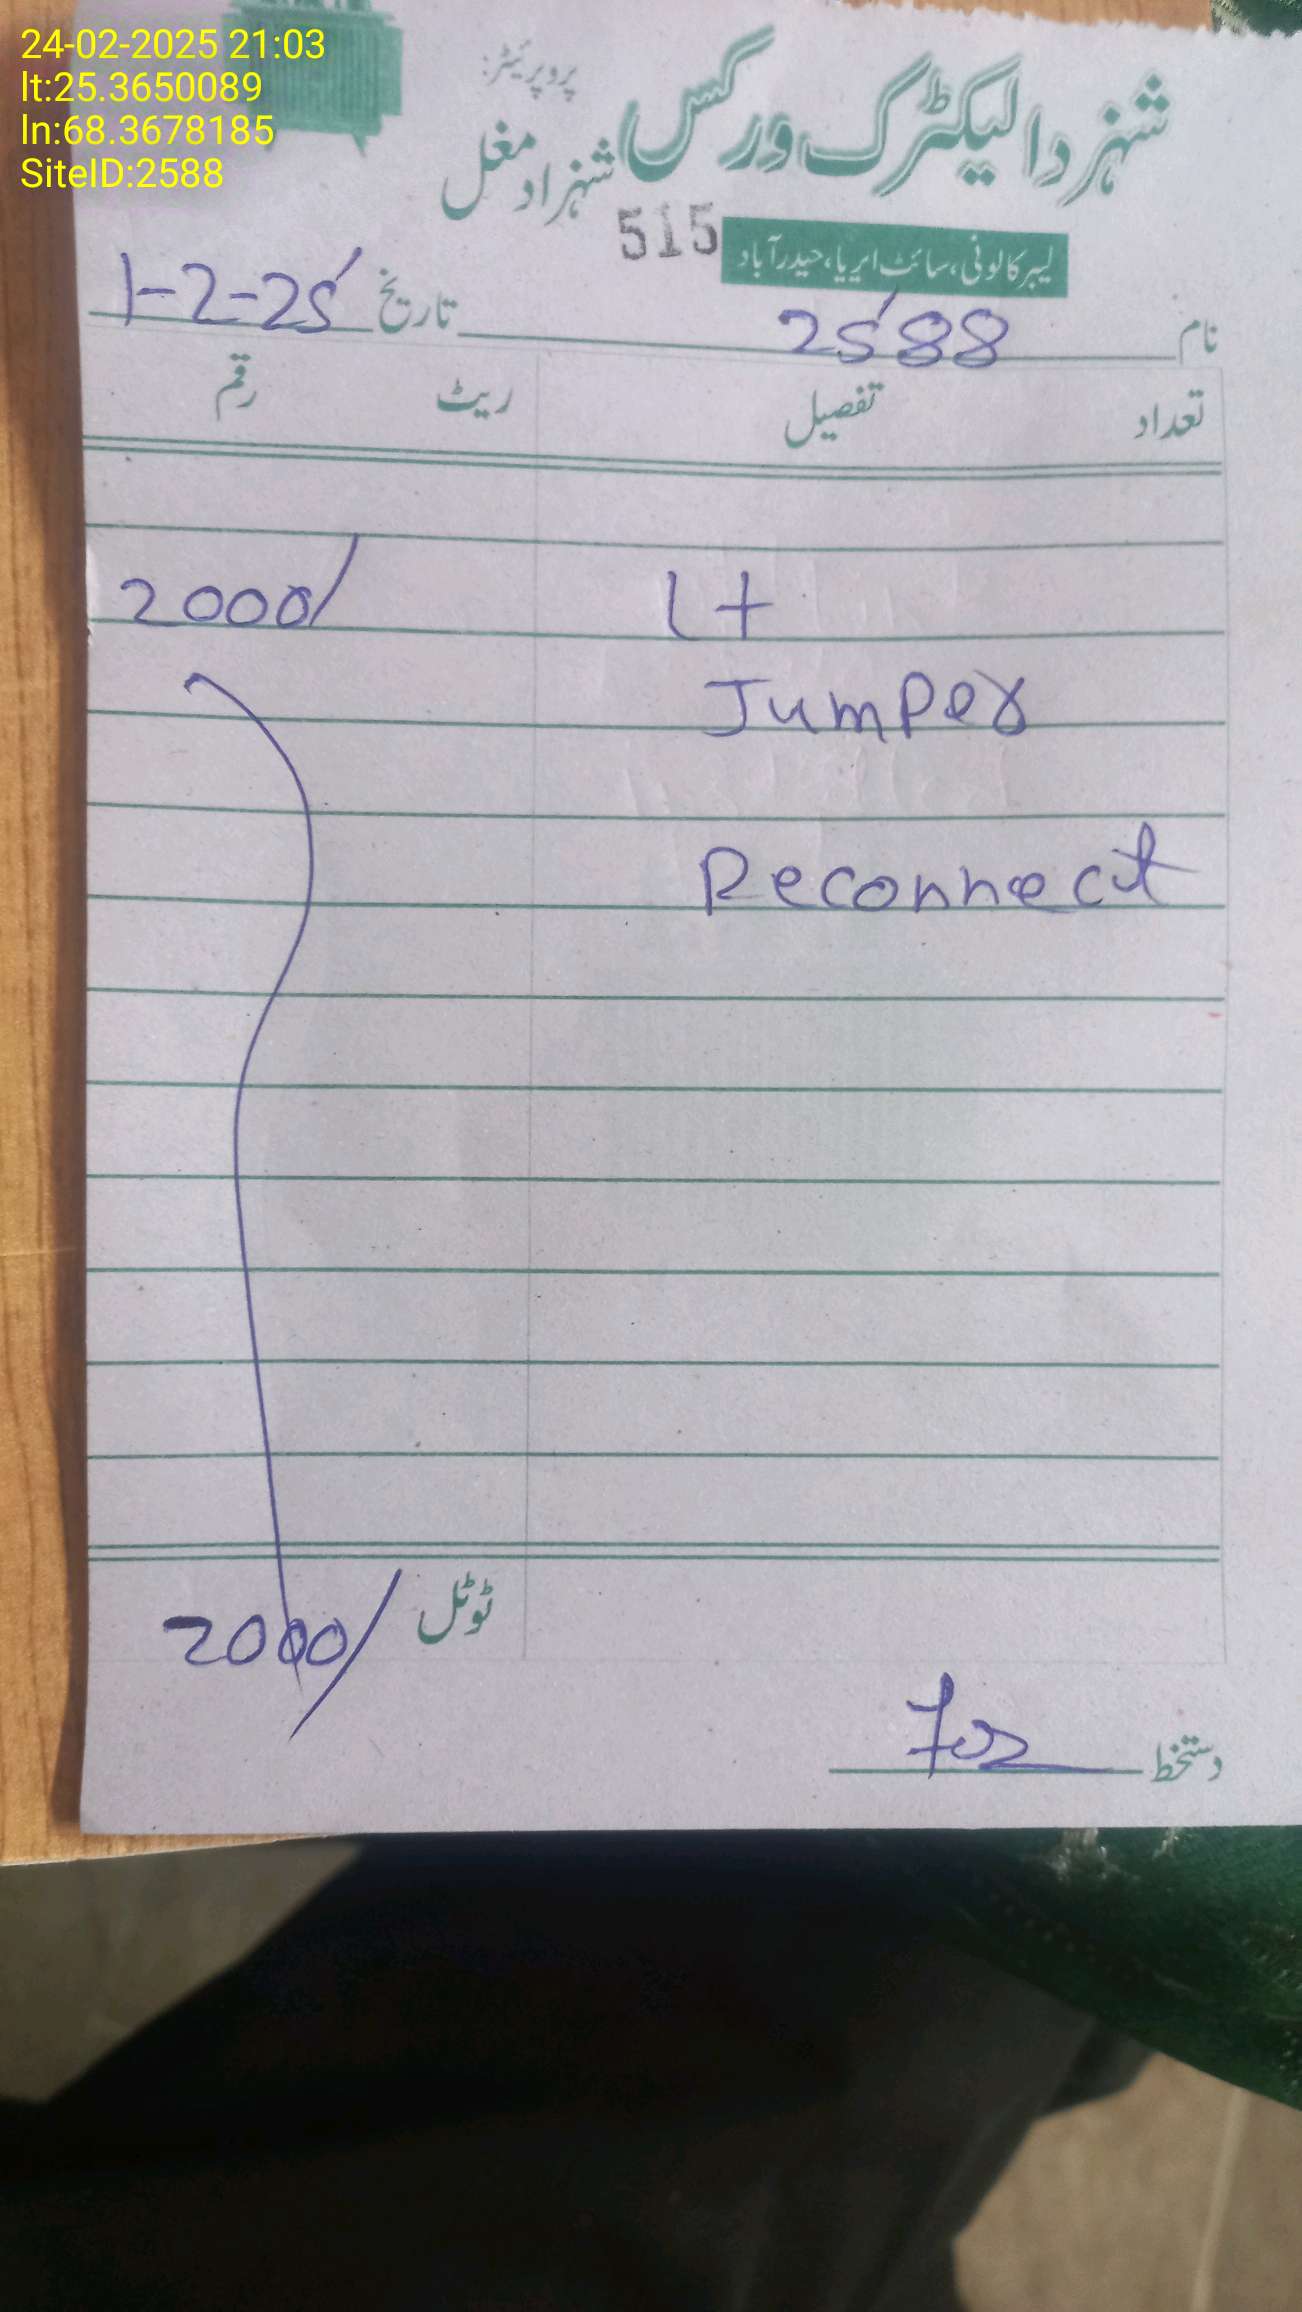 24-02-2025 21:03
lt:25.3650089
ln:68.3678185
SiteID:2588
شہزدا الیکٹرک ورکس
پروپرئیٹر:
شہزاد مغل
515
لیبر کالونی، سائٹ ایریا، حیدرآباد
نام 2588 تاریخ 1-2-25
تعداد تفصیل ریٹ رقم
Lt 2000/
Jumper
Reconnect
ٹوٹل 2000/
دستخط